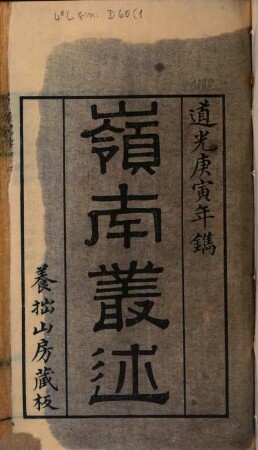 4° L. sin. D 60 (1
道光庚寅年鐫
嶺南叢述
養拙山房藏板